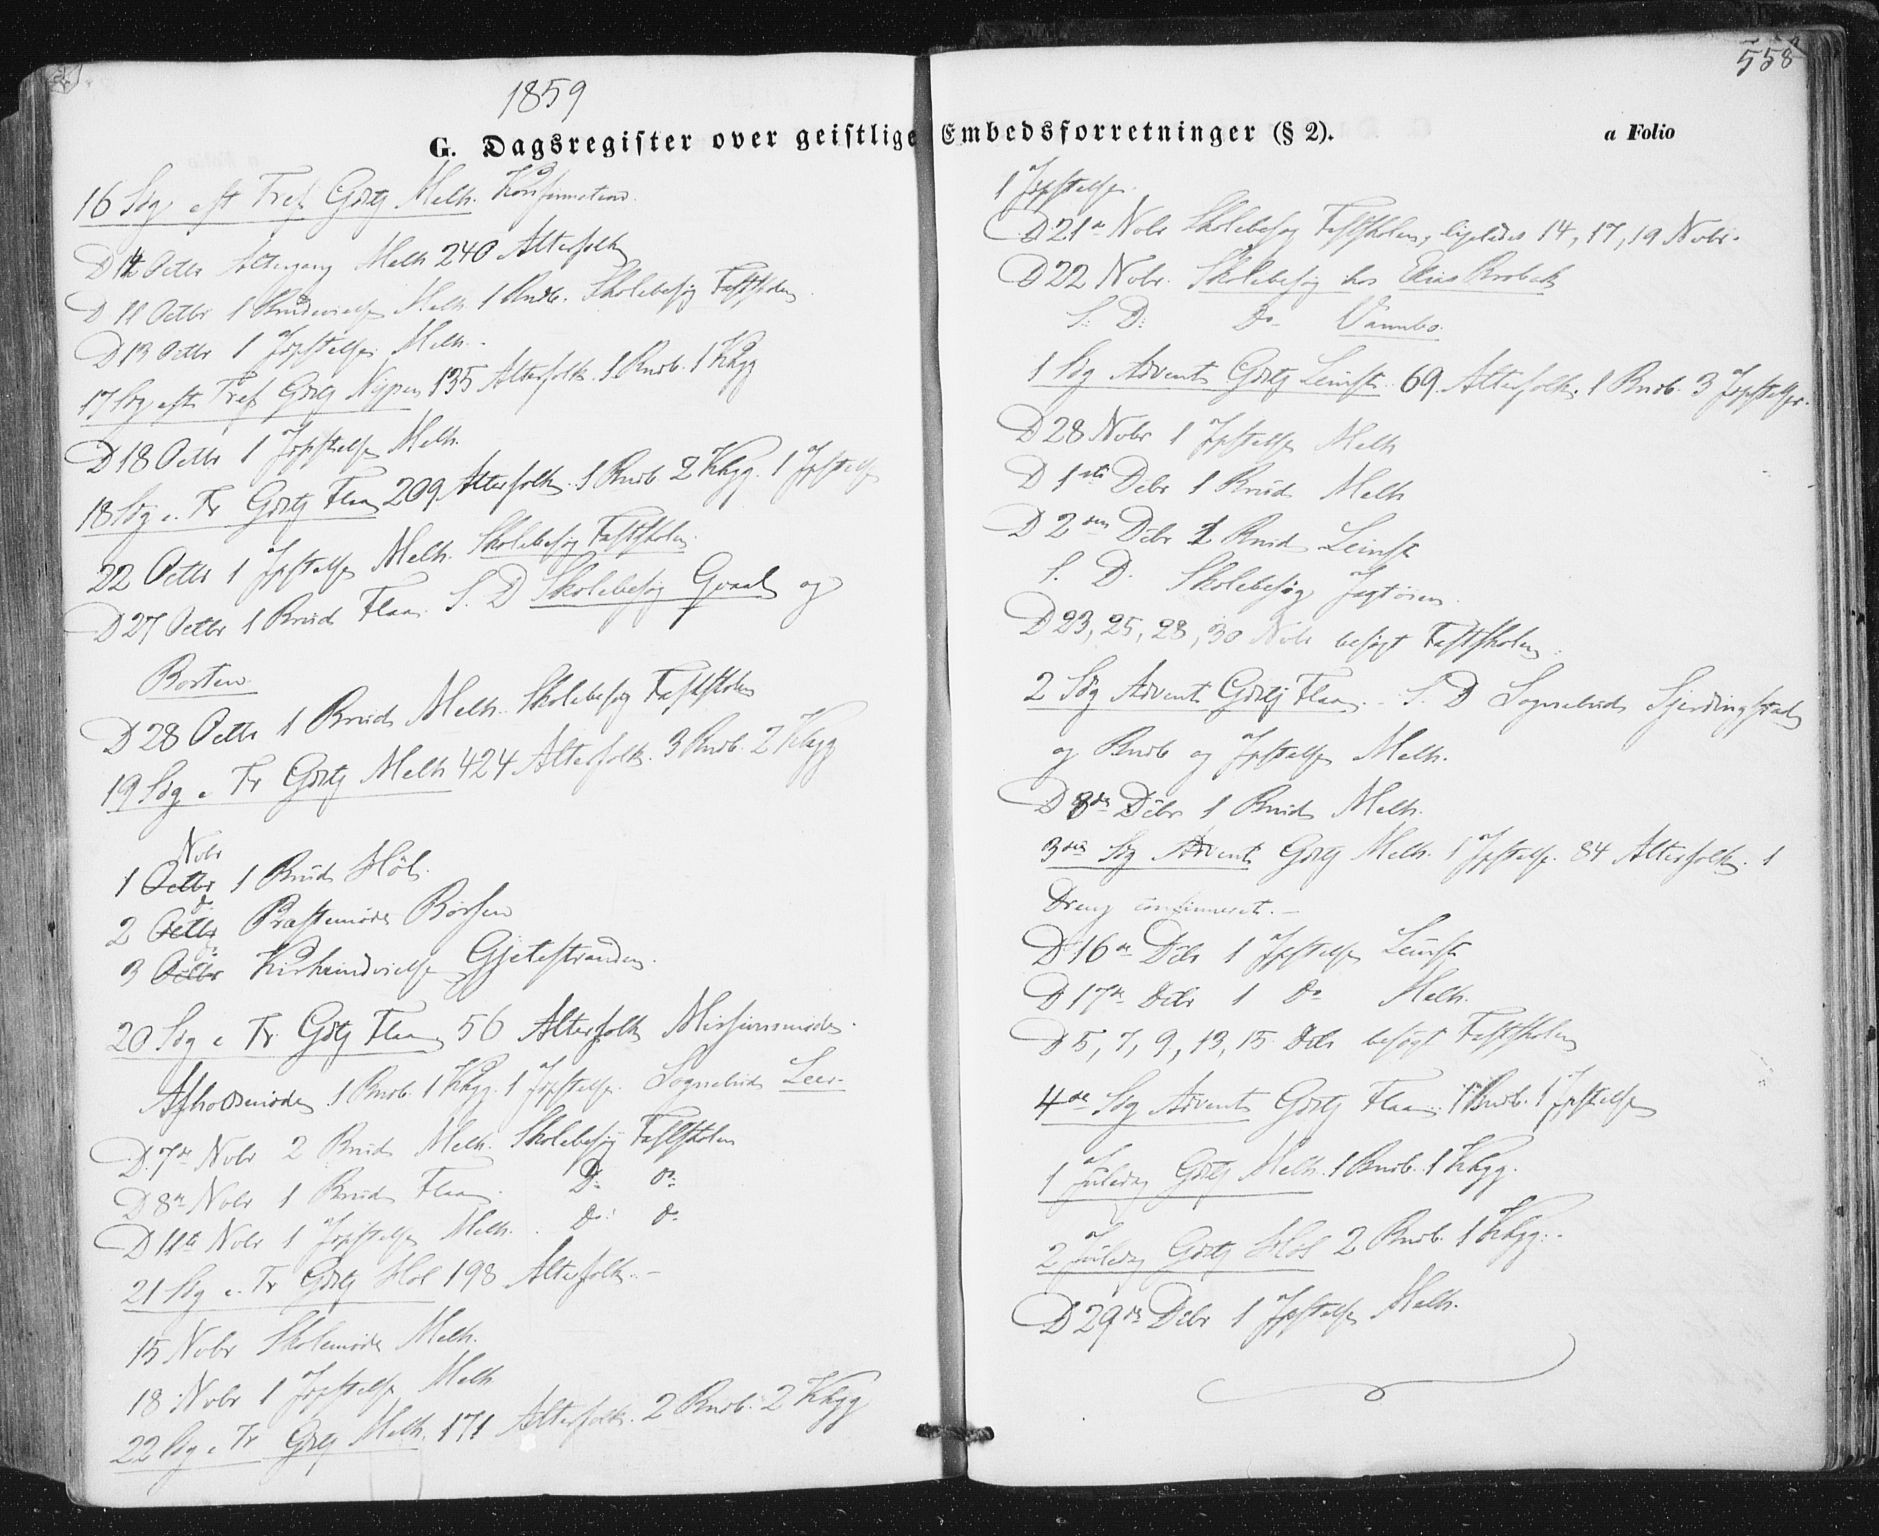 1859
558
G. Dagsregister over geistlige Embedsforretninger (§ 2).
a Folio
16 Søg eft Tref. Gdstj Melh. Konfirmation.
D 12 Octbr Altergang Melh 240 Alterfolk
D 11 Octbr 1 Brudevielse Melh 1 Brdb. Skolebesøg Fastskolen
D 13 Octbr 1 Jopstelse Melh.
17 Søg eft Tref Gdstj Nypen 135 Alterfolk. 1 Brnb. 1 Khgg
D 18 Octbr 1 Jopstelse Melh.
18 Søg e. Tr Gdstj Flaa 209 Alterfolk. 1 Brnb. 2 Khgg. 1 Jpstelse
22 Octbr 1 Jpstelse Melh. Skolebesøg Fastskolen.
D 27 Octbr 1 Brud Flaa. S. D Skolebesøg Gvaal og
Borten.
D 28 Octbr 1 Brud Melh. Skolebesøg Fastskolen
19 Søg e Tr Gdstj Melh 424 Alterfolk. 3 Brnb. 2 Khgg
Nobr
1 Octbr 1 Brud Høl.
do
2 Octbr Præstemøde Børsen
do
3 Octbr Kirkeindvielse Gjetestranden.
20 Søg e Tr. Gdstj Flaa 56 Alterfolk Missionsmøde.
Afholdsmøde 1 Brnb. 1 Khgg. 1 Jopstelse. Sognebud Leer.
D. 7de Nobr 2 Brud Melh. Skolebesøg Fastskolen
D 8de Nobr 1 Brud Flaa. Do do
D 11te Nobr 1 Jopstelse Melh. Do do
21 Søg e. Tr Gdstj Høl 198 Alterfolk. –
15 Nobr Skolemøde Melh.
18 Nobr 1 Jopstelse Melh
22 Søg e Tr Gdstj Melh. 171 Alterfolk. 2 Brnb. 2 Khgg
1 Jopstelse.
D 21de Nobr Skolebesøg Fastskolen, ligeledes 14, 17, 19 Nobr.
D 22 Nobr. Skolebesøg hos Elias Brobak
S. D: Do Vammbo.
1 Søg Advent Gdstj Leinst. 69 Alterfolk. 1 Brnb. 3 Jopstelser.
D 28 Nobr 1 Jpstelse Melh
D 1ste Debr 1 Brud Melh
D 2den Debr 1 Brud Leinst
S. D. Skolebesøg Jagtøien.
D 23, 25, 28, 30 Nobr besøgt Fastskolen.
2 Søg Advent Gdstj Flaa. – S. D Sognebud Gjerdingstad
og Brnb og Jpstelse Melh.
D 8de Debr 1 Brud Melh.
3die Søg Advent Gdstj Melh. 1 Jpstelse. 84 Alterfolk. 1
Dreng confirmeret. –
D 16de Debr 1 Jpstelse Leinst
D 17de Debr 1 do Melh.
D 5, 7, 9, 13, 15 Debr besøgt Fastskolen
4de Søg Advent Gdstj Flaa. 1 Brnb. 1 Jpstelse
1 Juledag Gdstj Melh. 1 Brnb. 1 Khgg.
2 Juledag Gdstj Høl 2 Brnb. 1 Khgg.
D 29de Debr 1 Jpstelse Melh.